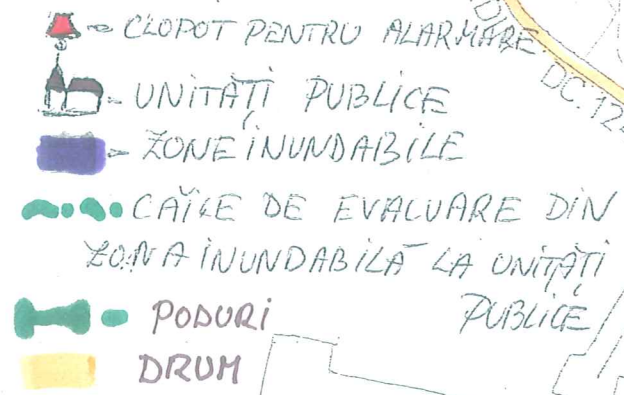 CLOPOT PENTRU ALARMARE
UNITĂȚI PUBLICE
ZONE INUNDABILE
CĂILE DE EVALUARE DIN
ZONA INUNDABILĂ LA UNITĂȚI
PUBLICE
PODURI
DRUM
DC. 124